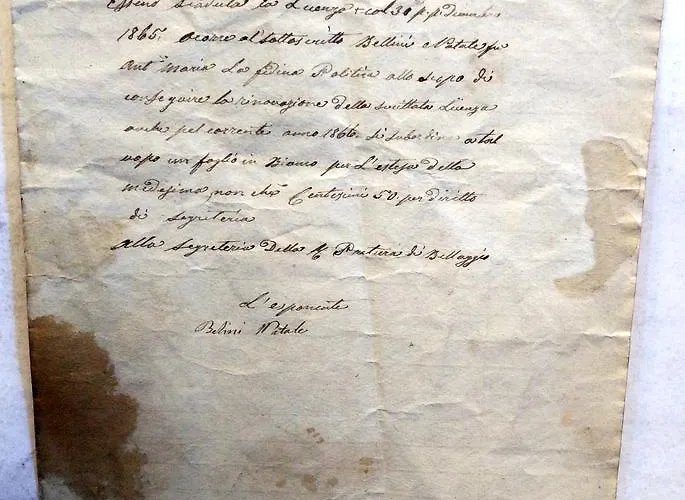 Essend scaduta la Licenza col 30 p.p. dicembre
1865. ocorre al sottoscritto Bellini Natale fu
Ant.º Maria La fedina Politica allo scopo di
conseguire la rinovazione della sucittata Licenza
anche pel corrente anno 1866. Si subordina a tal
uopo un foglio in Bianco per L'estesa della
medesima, non che Centesimi 50. per diritto
di Segreteria
Alla Segreteria Della R Pretura di Bellaggio
L'esponente
Belini Natale